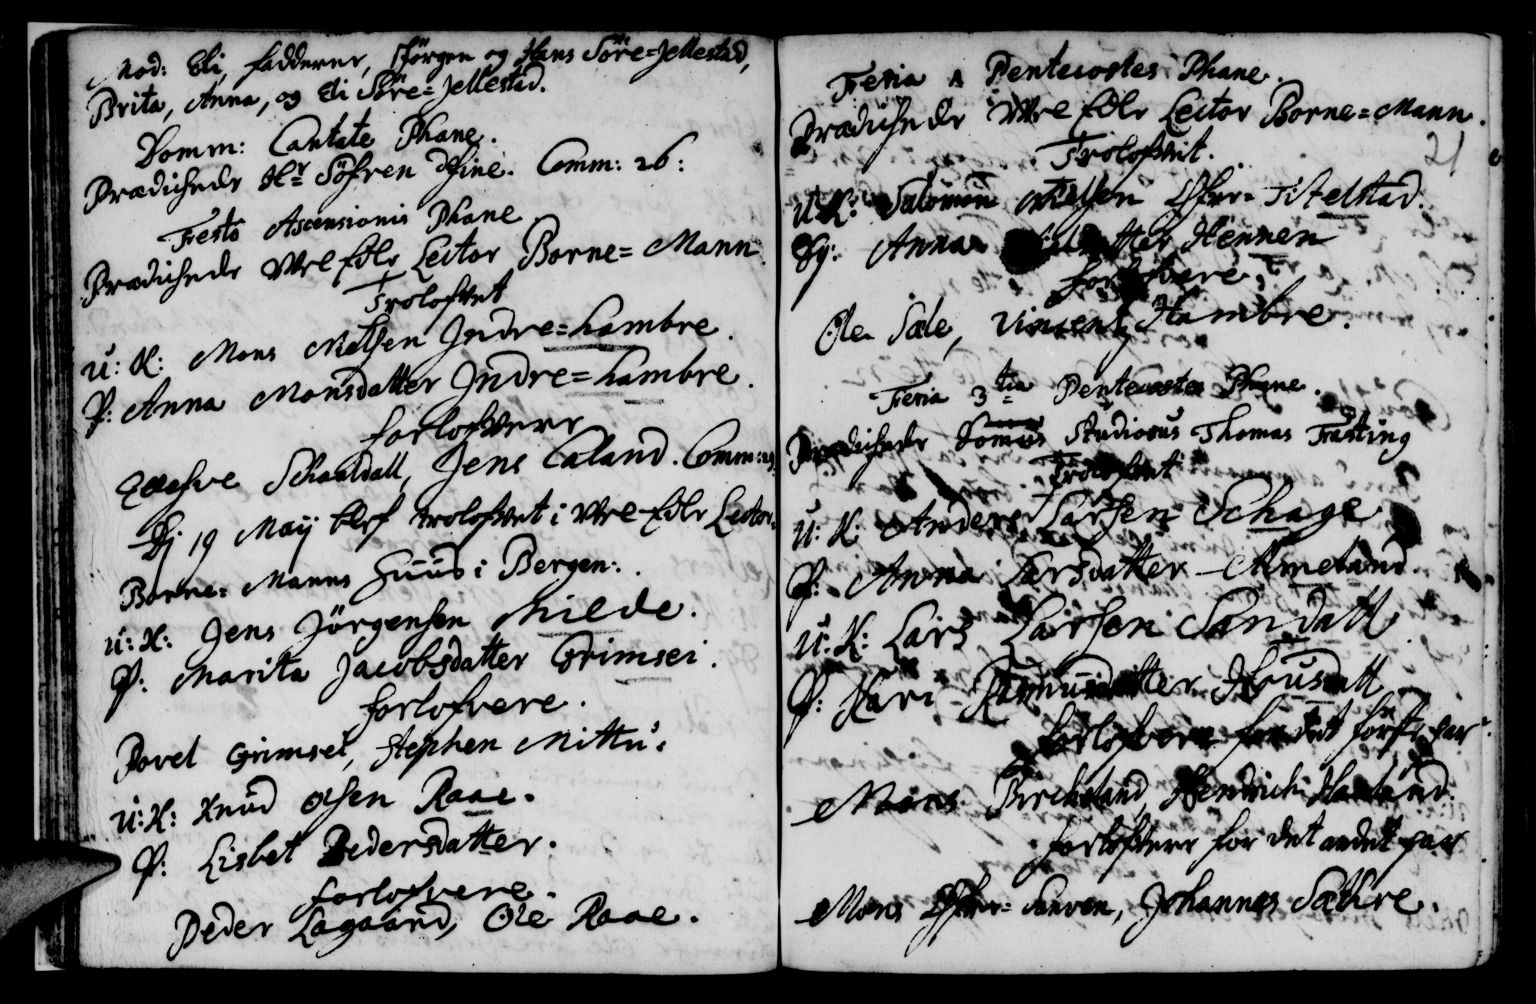 Mod: Eli, fadderer, Jörgen og Hans Söre=Jellestad,
Brita, Anna, og Eli Söre=Jellestad.
Domm: Cantate Phane.
Prædichede Hr Söfren Comm: 26:
Festo Ascensionis Phane
Prædichede Lector Borne=Mann.
Trolofvet
U: K: Mons Nielsen Indre=hambre.
P: Anna Monsdatter Indre=hambre.
forlofvere
Schaaldall, Jens Caland. Comm:
Dj 19 Maij blef trolofvet i Lector
Borne=Manns Huus i Bergen:
U: K: Jens Jörgensen Milde.
P: Marita Jacobsdatter Grimsei.
forlofvere.
Povel Grimsei, Stephen Mittu:
U: K: Knud Olsen Raae.
P: Lisbet Pedersdatter.
forlofvere.
Peder Lagaard, Ole Raae.
Feria 1 Pentecostes Phane.
Prædichede Lector Borne=Mann.
21
Trolofvet.
U: K: Salomon Nielsen Titelstad.
Anna Hennen
forlofvere,
Ole Sæle, Vincentz Hambre.
Feria 3tia Pentecostes Phane.
Prædichede Studiosus Thomas Frasting
Trolofvet
U: K: Anders Larsen Schage
P: Anna Larsdatter Ameland.
U: K: Lars Larsen Sandall
P: Kari Rasmusdatter
forlofvere for det först par
Maans Birkeland, Hendrich Hauland.
forlofvere for det andet par
Mons Sanven, Johannes Sættre.